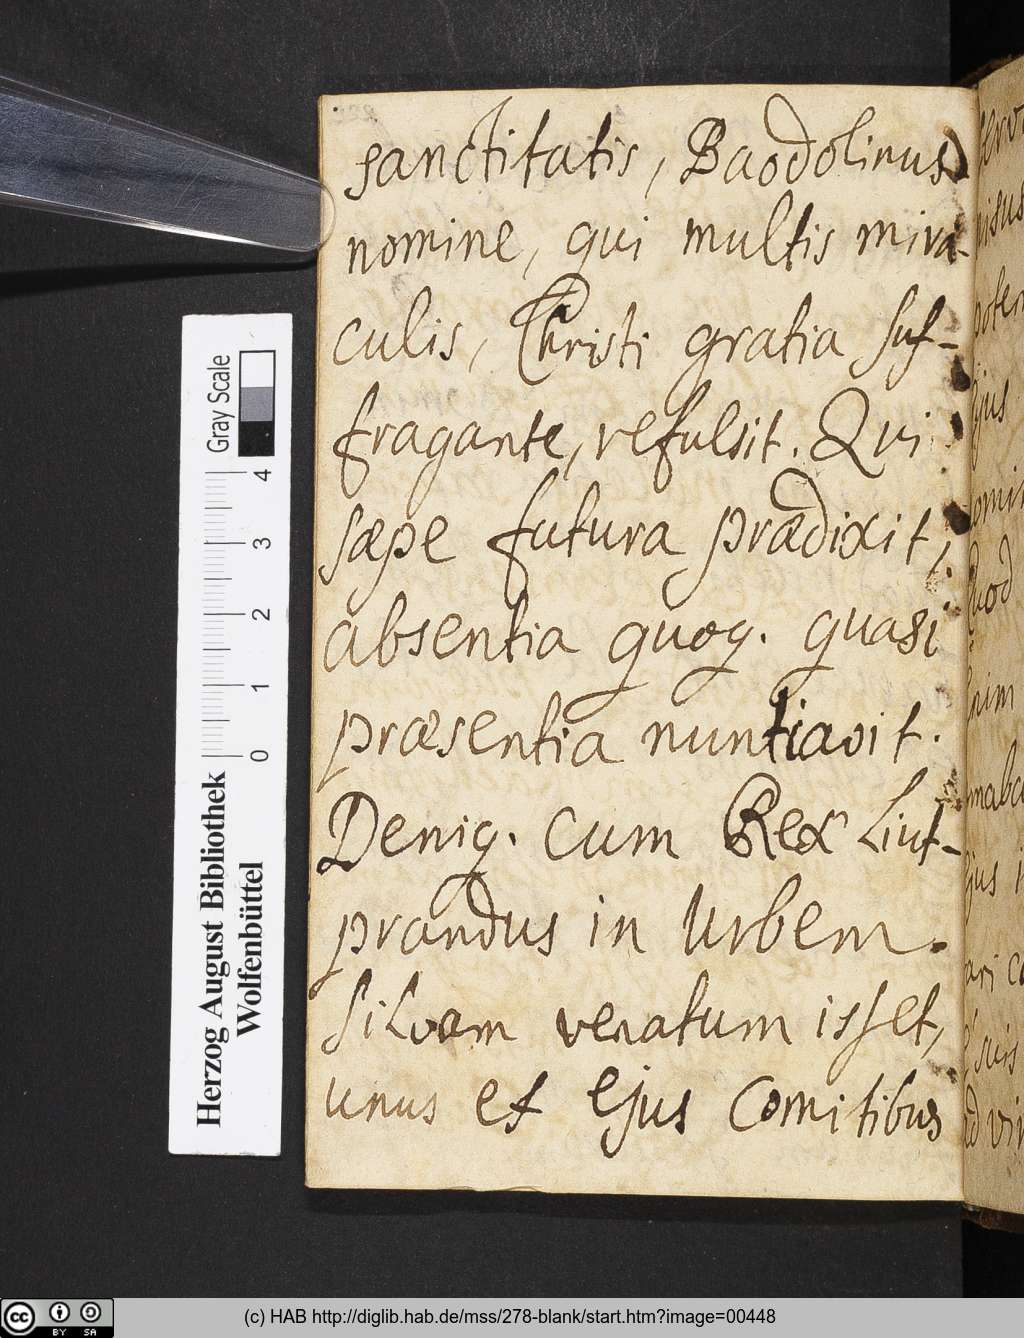 sanctitatis, Baodolinus
nomine, qui multis mira-
culis, Christi gratia suf-
fragante, refulsit. Qui
saepe futura praedixit,
absentia quoq. quasi
praesentia nuntiavit.
Deniq. cum Rex Liut-
prandus in Urbem.
silvam venatum isset,
unus et ejus Comitibus
Gray Scale
4
3
2
1
0
Herzog August Bibliothek
Wolfenbüttel
cc BY SA
(c) HAB http://diglib.hab.de/mss/278-blank/start.htm?image=00448